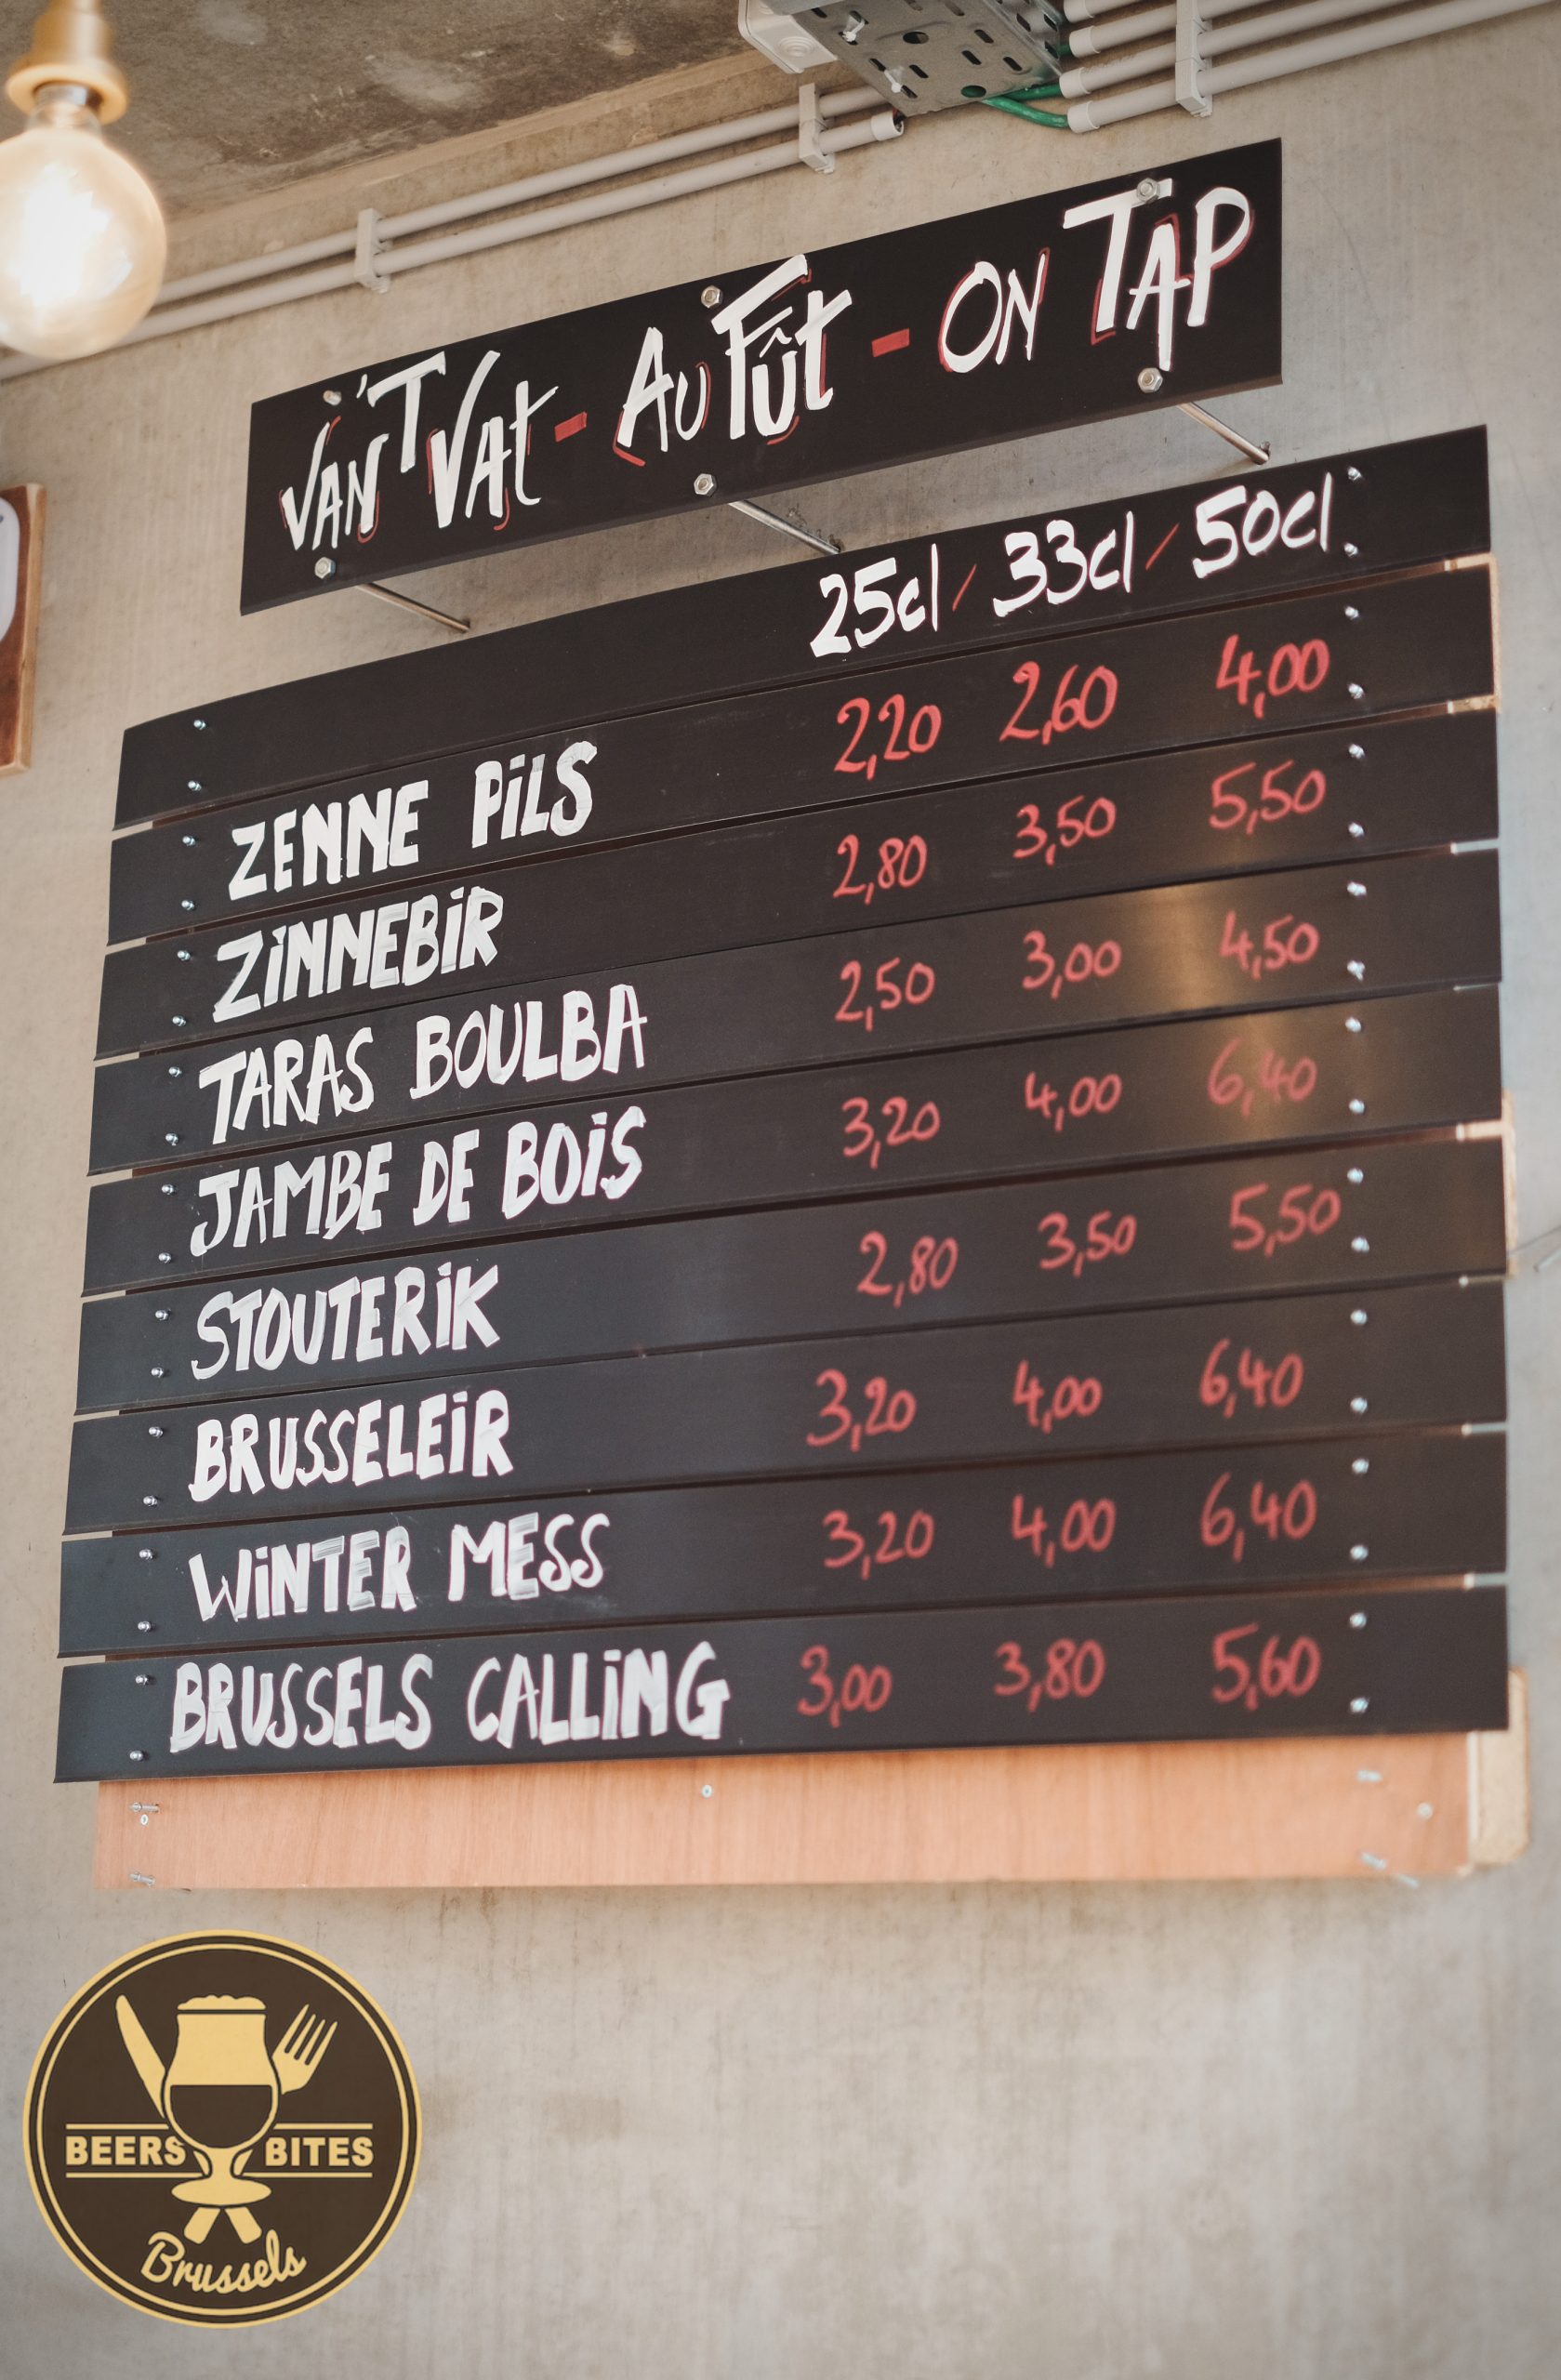 VAN 'T VAt - Au Fût - ON TAP
25cl / 33cl / 50cl
ZENNE PiLS 2,20 2,60 4,00
ZiNNEBiR 2,80 3,50 5,50
TARAS BOULBA 2,50 3,00 4,50
JAMBE DE BOiS 3,20 4,00 6,40
STOUTERiK 2,80 3,50 5,50
BRUSSELEiR 3,20 4,00 6,40
WiNTER MESS 3,20 4,00 6,40
BRUSSELS CALLiNG 3,00 3,80 5,60
BEERS BITES
Brussels